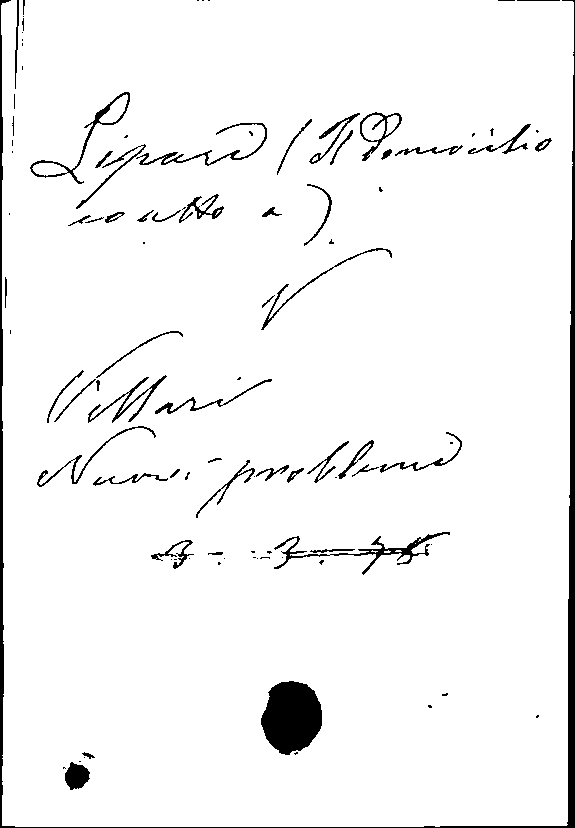 Lipari (Il Domicilio
coatto a)
V
Villari
Nuovi problemi
3 - 3. 7 8